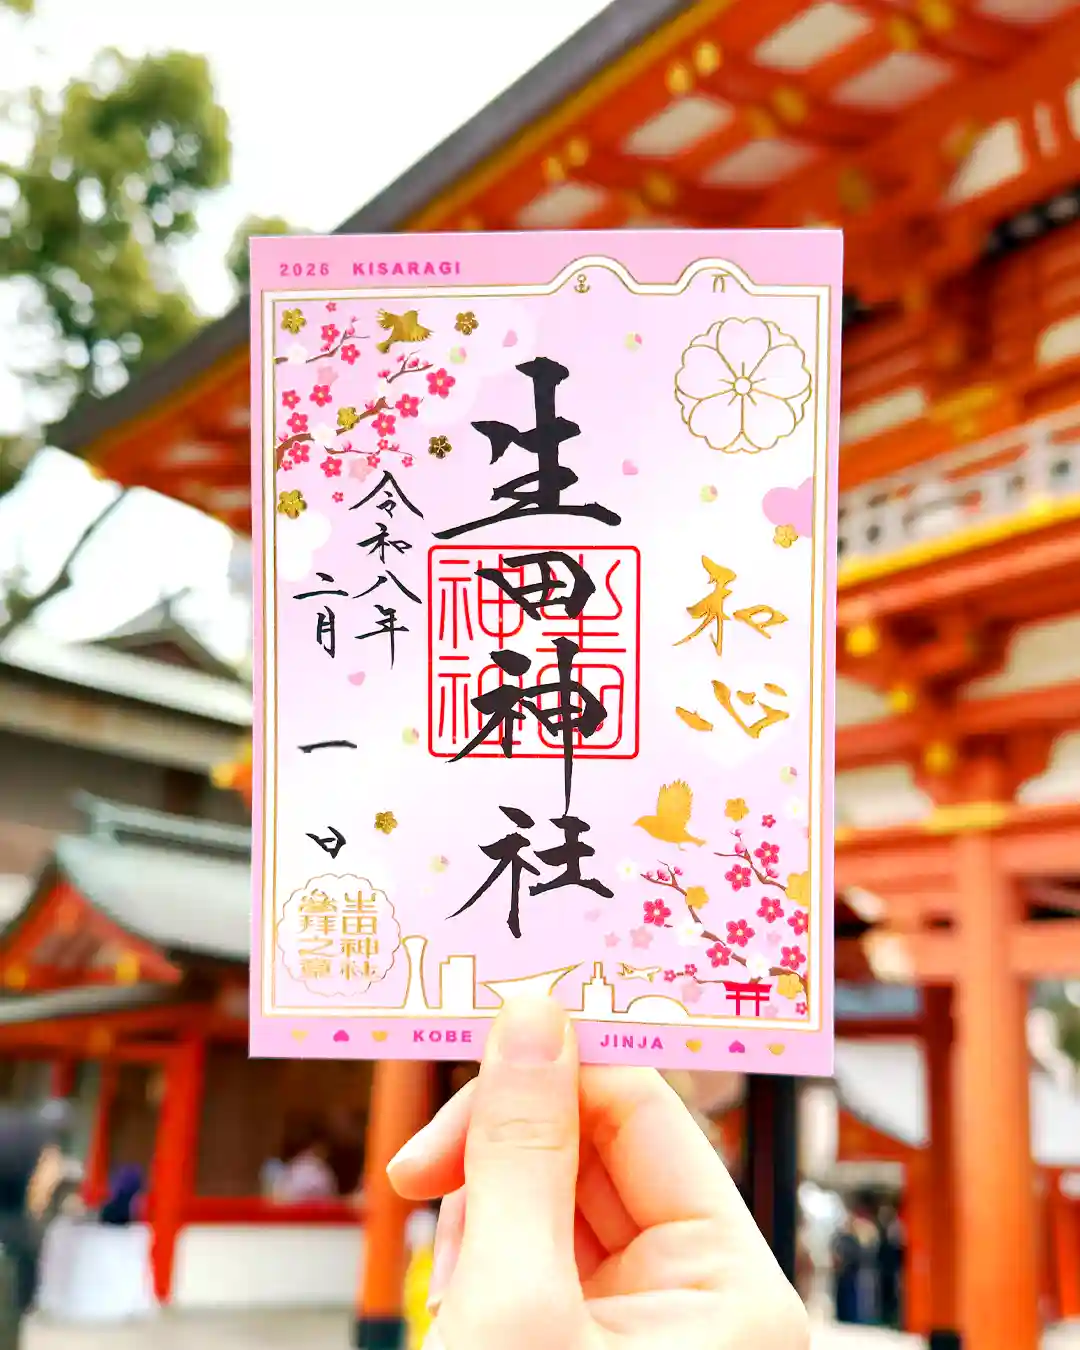 2026 KISARAGI
和心
生田神社
令和八年
二月
一日
生田神社
参拝之章
KOBE
JINJA